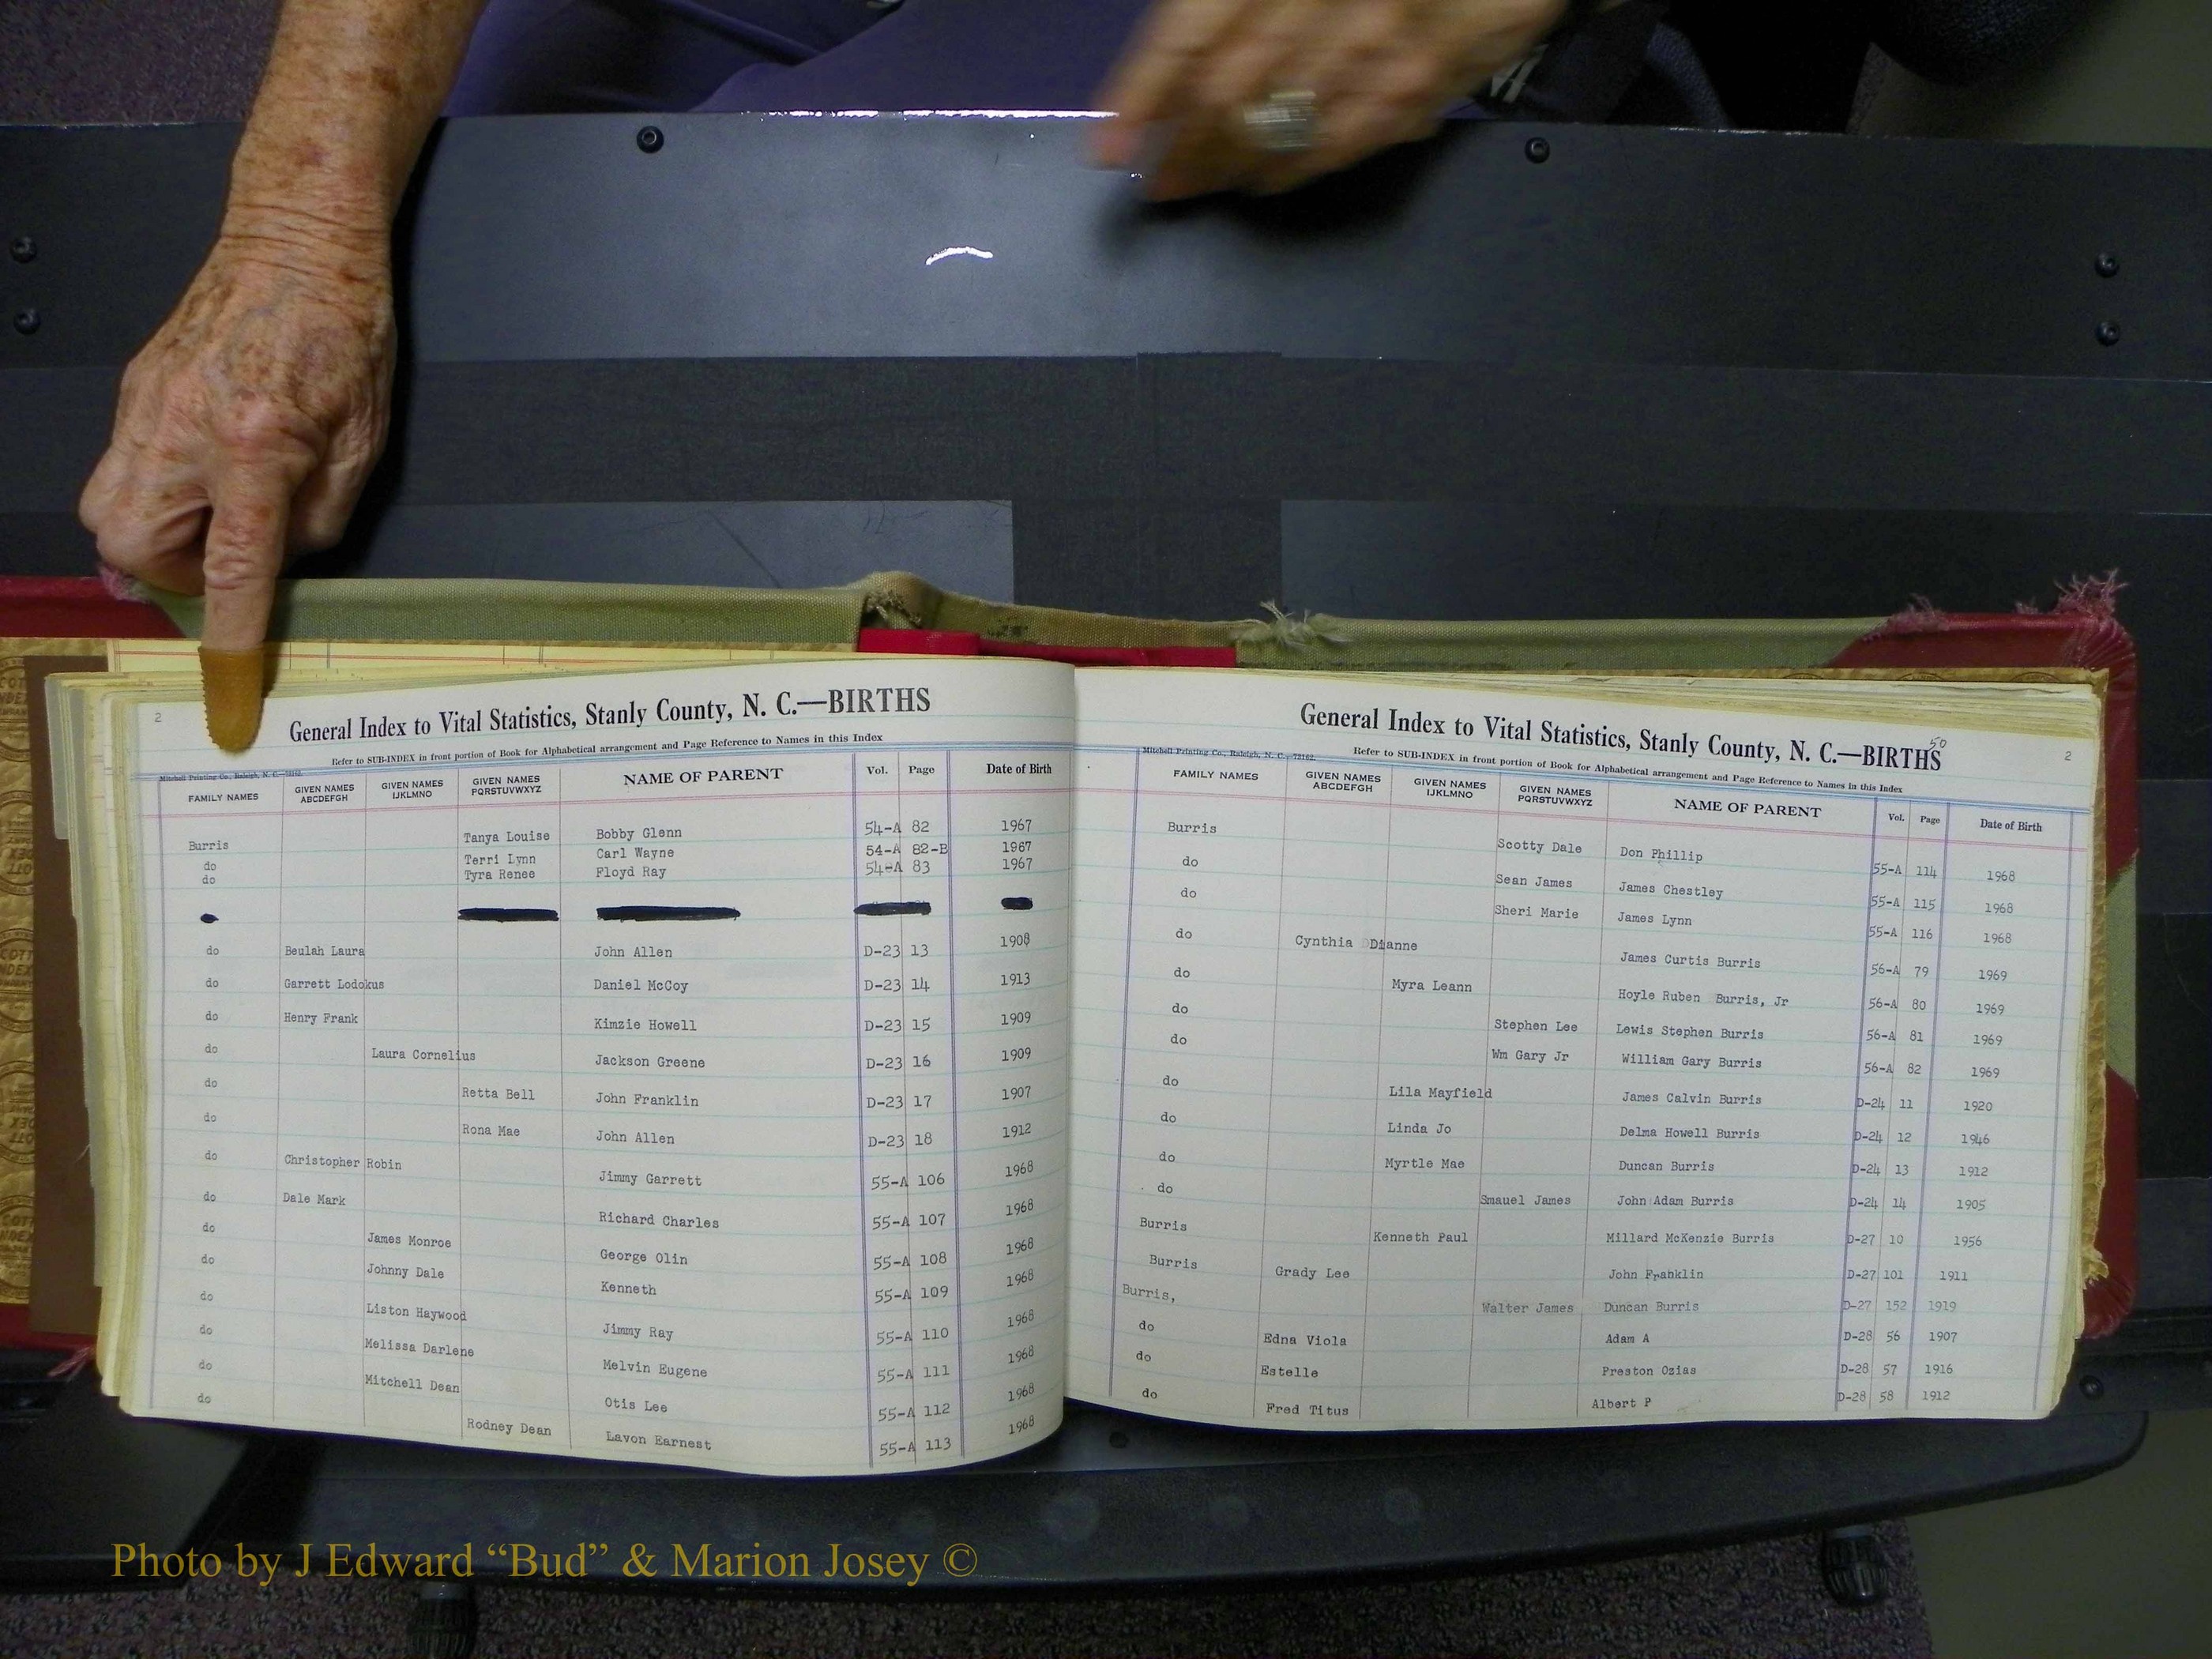 2
General Index to Vital Statistics, Stanly County, N. C.—BIRTHS
Refer to SUB-INDEX in front portion of Book for Alphabetical arrangement and Page Reference to Names in this Index
Mitchell Printing Co., Raleigh, N. C.
FAMILY NAMES GIVEN NAMES ABCDEFGH GIVEN NAMES IJKLMNO GIVEN NAMES PQRSTUVWXYZ NAME OF PARENT Vol. Page Date of Birth
Burris Tanya Louise Bobby Glenn 54-A 82 1967
do Terri Lynn Carl Wayne 54-A 82-B 1967
do Tyra Renee Floyd Ray 54-A 83 1967
do Beulah Laura John Allen D-23 13 1908
do Garrett Lodokus Daniel McCoy D-23 14 1913
do Henry Frank Kimzie Howell D-23 15 1909
do Laura Cornelius Jackson Greene D-23 16 1909
do Retta Bell John Franklin D-23 17 1907
do Rona Mae John Allen D-23 18 1912
do Christopher Robin Jimmy Garrett 55-A 106 1968
do Dale Mark Richard Charles 55-A 107 1968
do James Monroe George Olin 55-A 108 1968
do Johnny Dale Kenneth 55-A 109 1968
do Liston Haywood Jimmy Ray 55-A 110 1968
do Melissa Darlene Melvin Eugene 55-A 111 1968
do Mitchell Dean Otis Lee 55-A 112 1968
do Rodney Dean Lavon Earnest 55-A 113 1968
50
2
General Index to Vital Statistics, Stanly County, N. C.—BIRTHS
Mitchell Printing Co., Raleigh, N. C.—73162.
Refer to SUB-INDEX in front portion of Book for Alphabetical arrangement and Page Reference to Names in this Index
FAMILY NAMES GIVEN NAMES ABCDEFGH GIVEN NAMES IJKLMNO GIVEN NAMES PQRSTUVWXYZ NAME OF PARENT Vol. Page Date of Birth
Burris Scotty Dale Don Phillip 55-A 114 1968
do Sean James James Chestley 55-A 115 1968
do Sheri Marie James Lynn 55-A 116 1968
do Cynthia Dianne James Curtis Burris 56-A 79 1969
do Myra Leann Hoyle Ruben Burris, Jr 56-A 80 1969
do Stephen Lee Lewis Stephen Burris 56-A 81 1969
do Wm Gary Jr William Gary Burris 56-A 82 1969
do Lila Mayfield James Calvin Burris D-24 11 1920
do Linda Jo Delma Howell Burris D-24 12 1946
do Myrtle Mae Duncan Burris D-24 13 1912
do Smauel James John Adam Burris D-24 14 1905
Burris Kenneth Paul Millard McKenzie Burris D-27 10 1956
Burris Grady Lee John Franklin D-27 101 1911
Burris, Walter James Duncan Burris D-27 152 1919
do Edna Viola Adam A D-28 56 1907
do Estelle Preston Ozias D-28 57 1916
do Fred Titus Albert P D-28 58 1912
Photo by J Edward “Bud” & Marion Josey ©